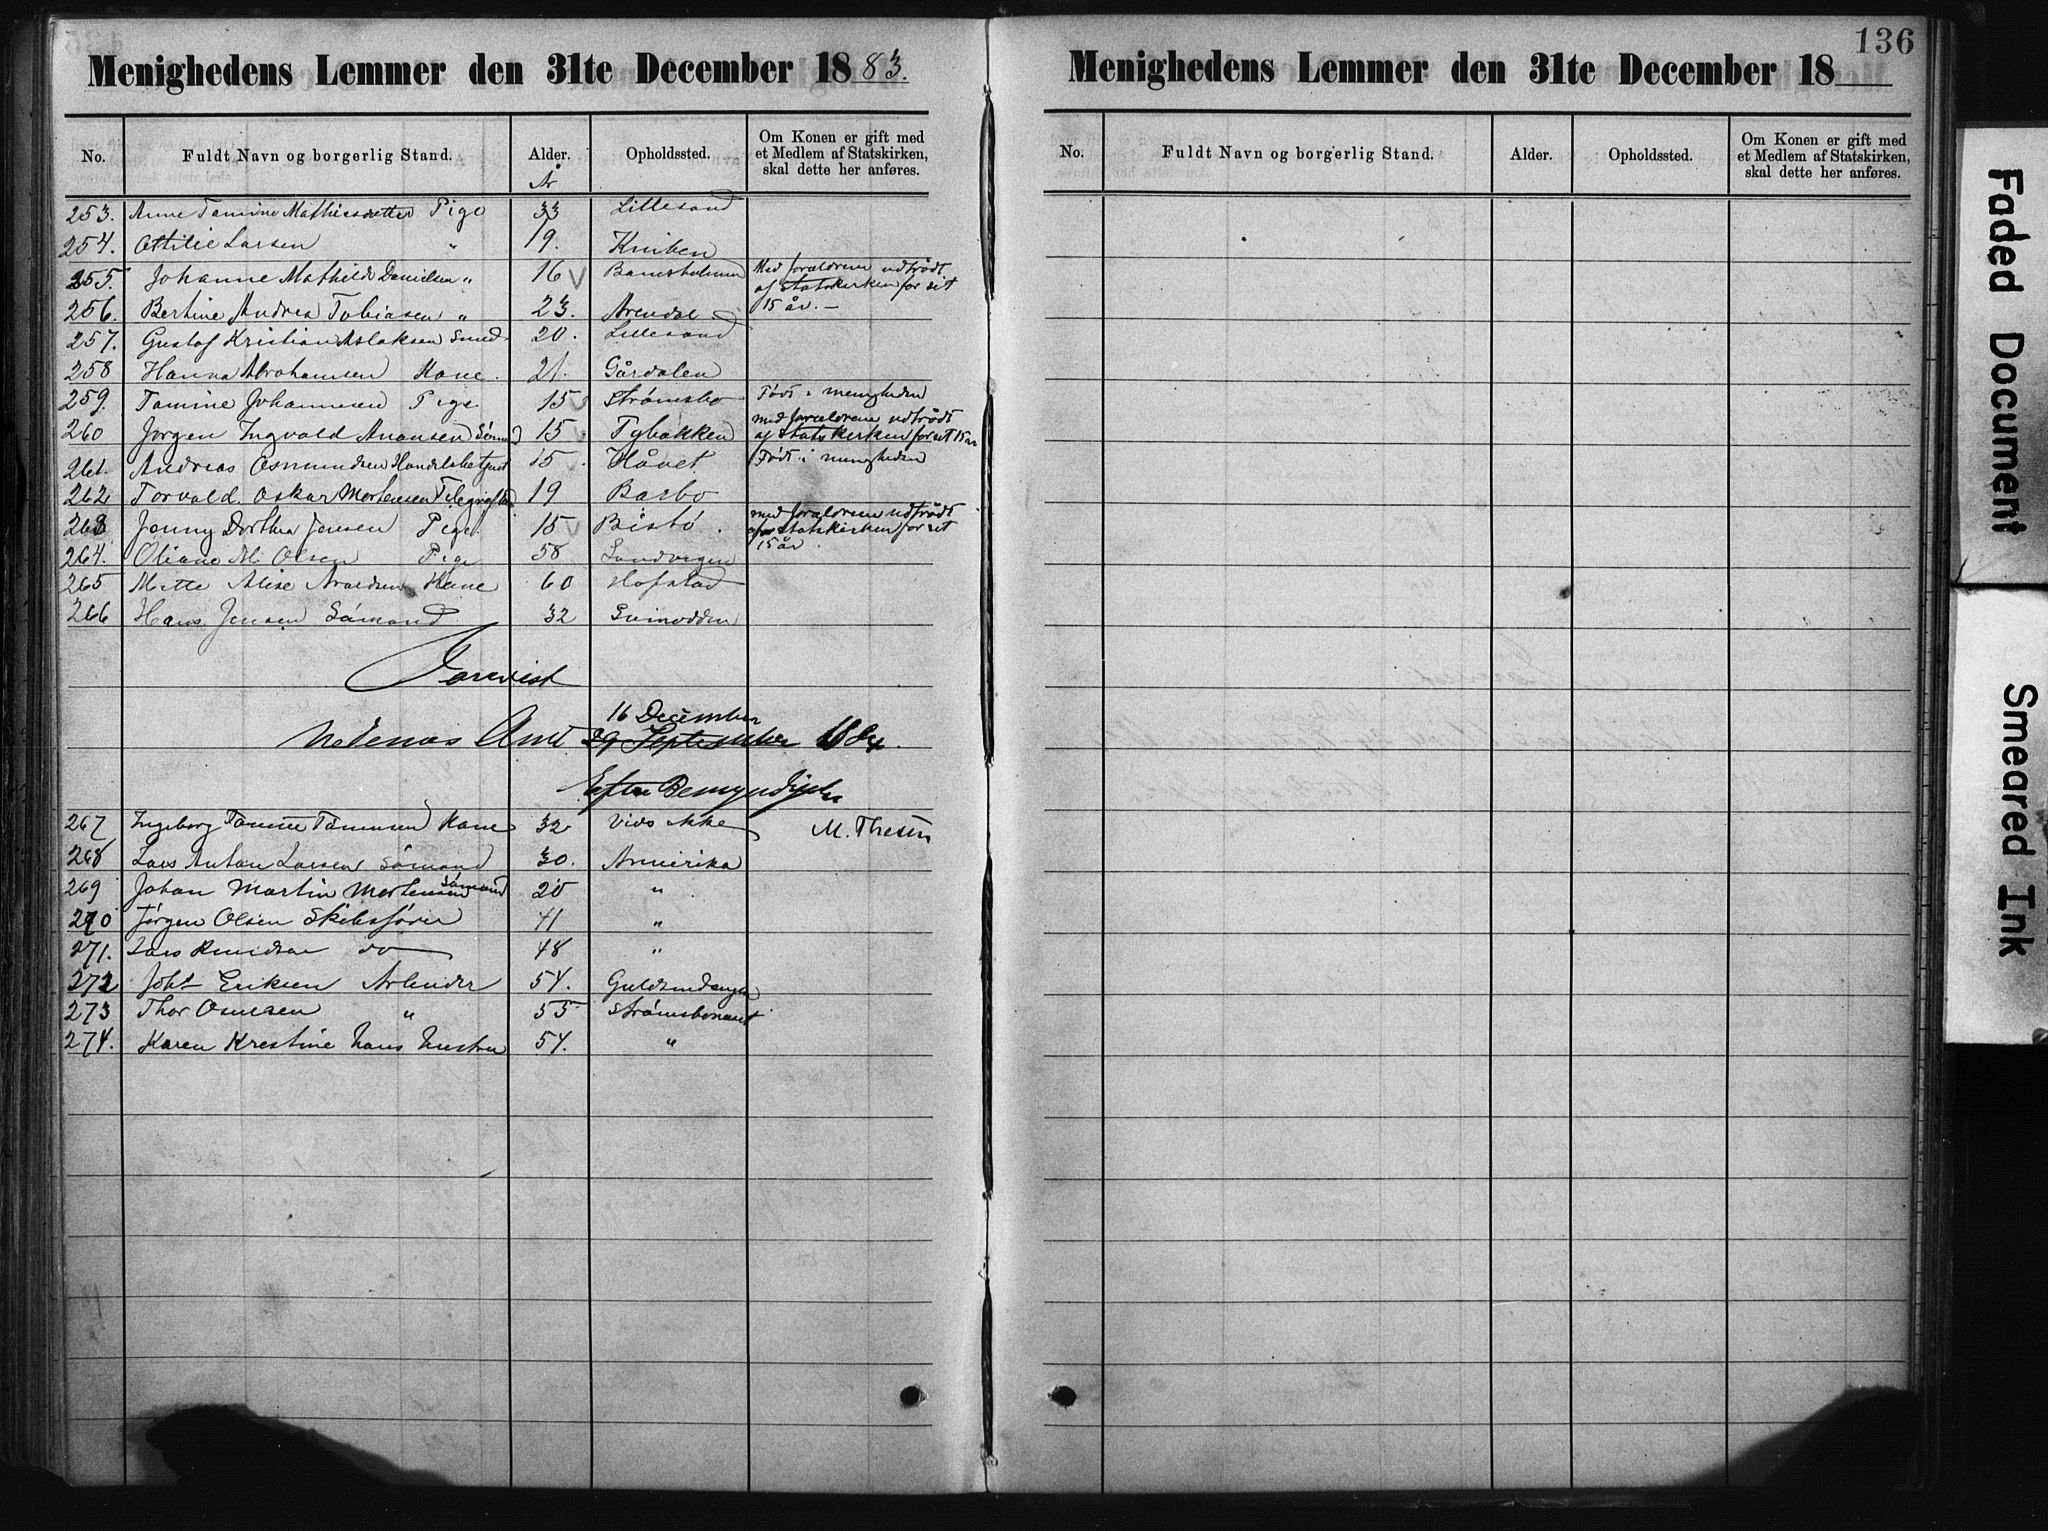 Menighedens Lemmer den 31te December 1883.
No. Fuldt Navn og borgerlig Stand. Alder. Opholdssted. Om Konen er gift med et Medlem af Statskirken, skal dette her anføres.
År
253. Anne Tomine Mathiesdatter Pige 33 Lillesand
254. Ottilie Larsen " 19. Kniben
255. Johanne Mathilde Danielsen " 16 Med forældrene udtrådt
af Statskirken for sit
256. Bertine Andrea Tobiasen " 23. Arendal 15 år. —
257. Gustaf Kristian Aslaksen 20. Lillesand
258 Hanna Abrahamsen Kone. 21. Gårdalen
259. Tomine Johannesen Pige 15 Strømsbo Født i menigheden
med forældrene udtrådt
260 Jørgen Ingvald Anonsen Sømand 15 Tybakken af Statskirken for sit 15 år
261. Andreas Osmundsen Handelsbetjent 15 Håvet Født i menigheden
262 Torvald Oskar Mortensen 19 Barbo
med forældrene udtrådt
263 Jenny Dorthea Jensen Pige 15 af Statskirken for sit
15 år
264. Oliane M. Olsen Pige 58 Sandvigen
265 Mette Alise Kone 60 Hofstad
266 Hans Jensen Sømand 32
Forevist
16 December
Nedenæs Amt 29 September 1884.
Efter Bemyndigelse
M. Thesen
267 Ingeborg Tomine Kone 32 Vides ikke
268 Lars Anton Larsen Sømand 30. Amerika
269 Johan Martin Mortensen Sømand 20 "
270 Jørgen Olsen Skibsfører 41 "
271. Lars Knudsen do 48 "
272 Joh: Eriksen Arbeider 54.
273 Thor Osuldsen " 55 Strømsboneset
274. Karen Kristine hans hustru 54. "
136
Menighedens Lemmer den 31te December 18
No. Fuldt Navn og borgerlig Stand. Alder. Opholdssted. Om Konen er gift med et Medlem af Statskirken, skal dette her anføres.
Faded Document
Smeared Ink